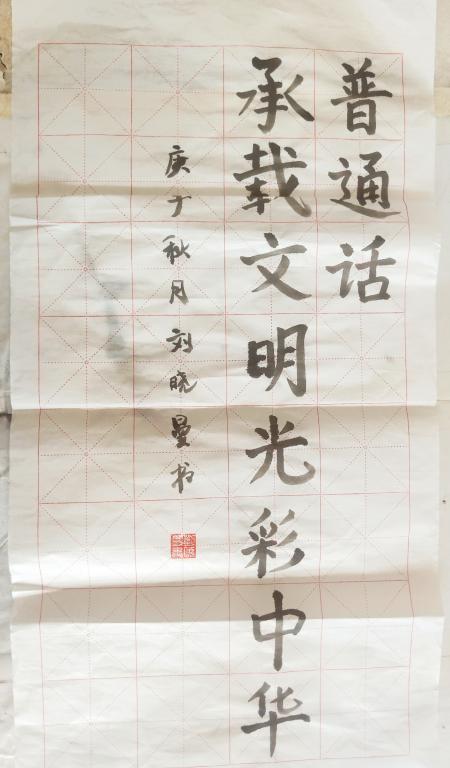 普通话
承载文明光彩中华
庚子秋月刘晓曼书